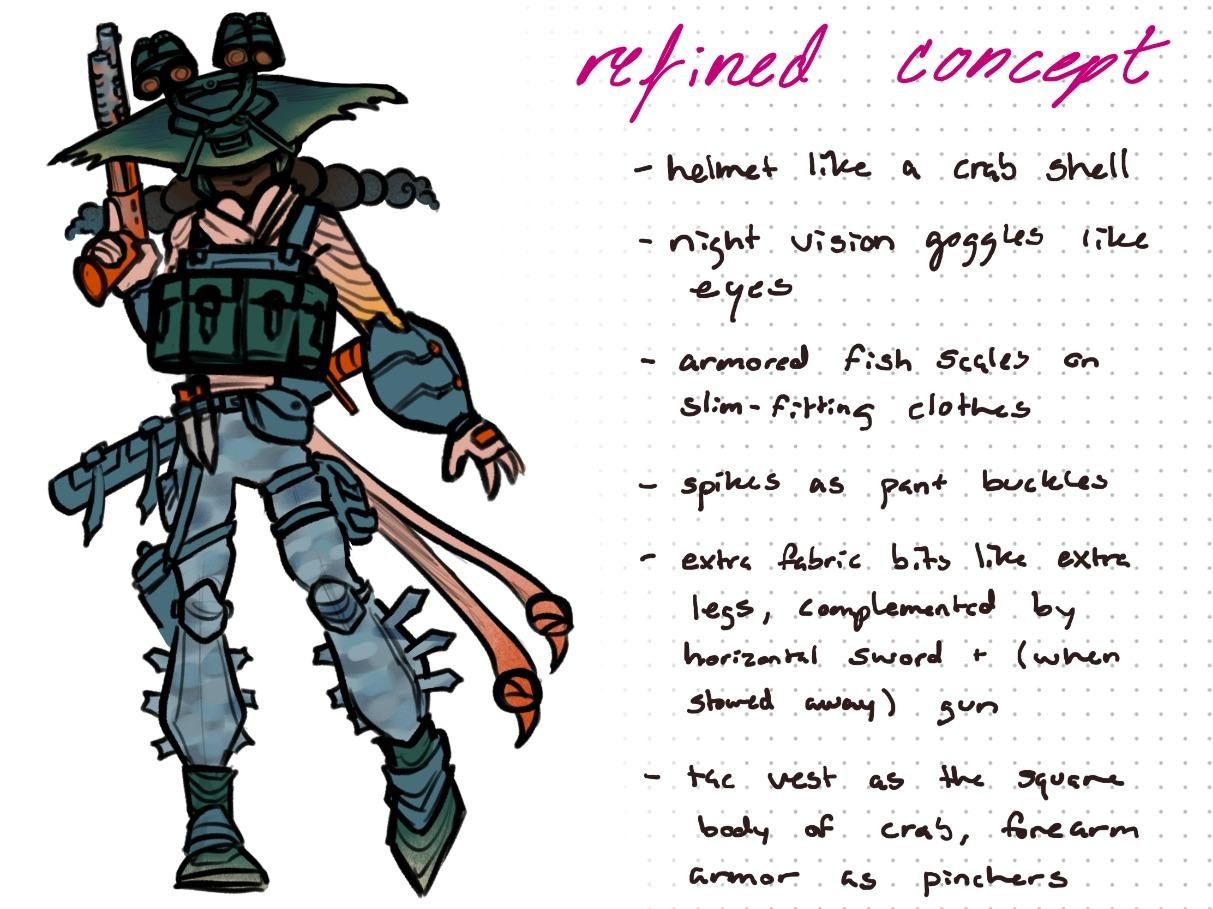 refined concept
- helmet like a crab shell
- night vision goggles like
eyes
- armored fish scales on
slim-fitting clothes
- spikes as pant buckles
- extra fabric bits like extra
legs, complemented by
horizontal sword + (when
stowed away) gun
- tac vest as the square
body of crab, forearm
armor as pinchers